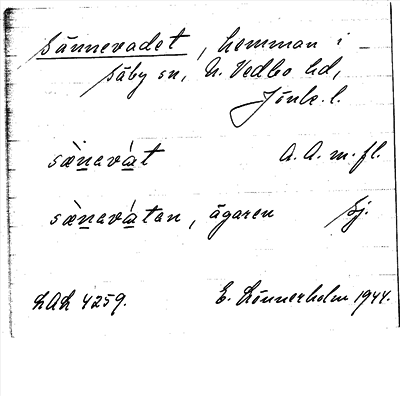 Sännevadet, hemman i
Säby sn, N. Vedbo hd,
Jönk. l.
sæ̀nevát A. A. m. fl.
sæ̀nevátan, ägaren Sj.
LAL 4259. E. Lönnerholm 1944.